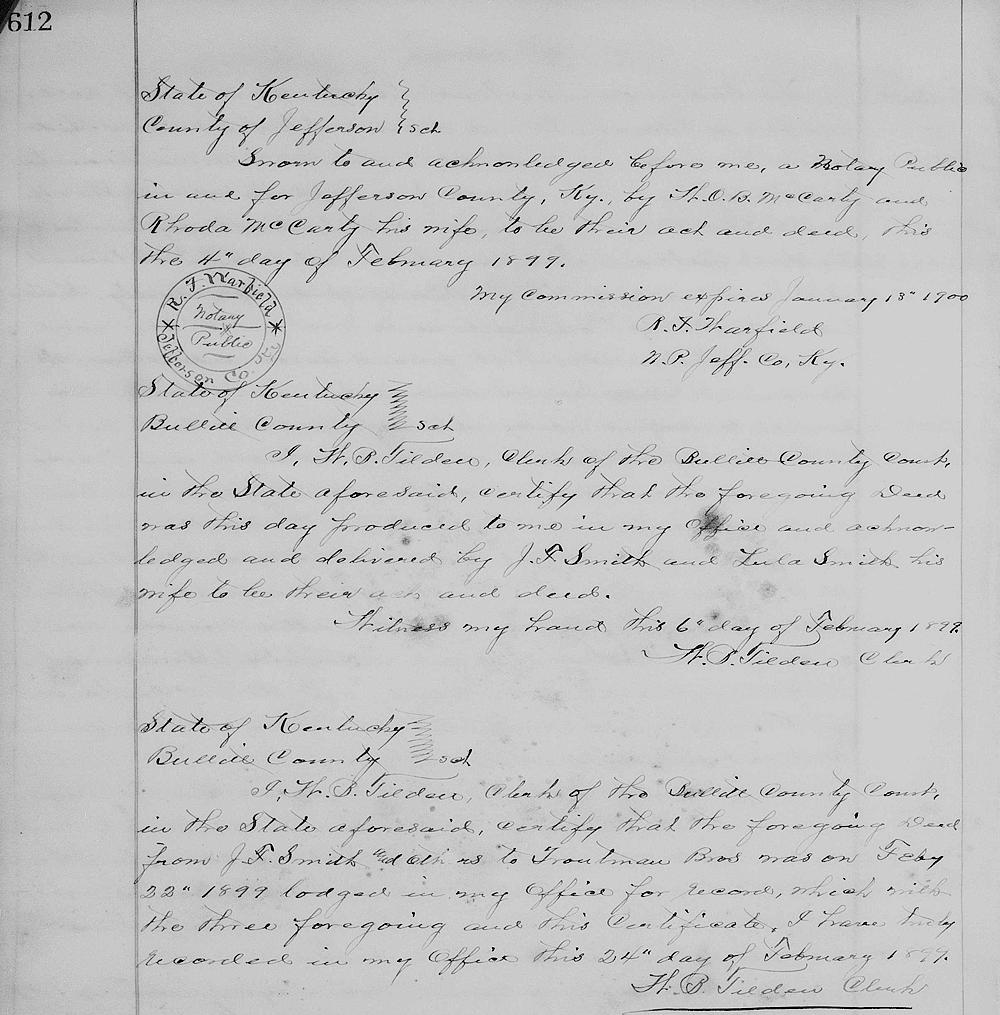 612
State of Kentucky
County of Jefferson } sct
Sworn to and acknowledged before me, a Notary Public
in and for Jefferson County, Ky., by H.O.B. McCarty and
Rhoda McCarty his wife, to be their act and deed, this
the 4" day of February 1899.
My Commission expires January 13" 1900
R.F. Warfield
N.P. Jeff. Co, Ky.
R. F. Warfield
Notary
Public
Jefferson Co. Ky.
State of Kentucky
Bullitt County } sct
I, W.B. Tilden, Clerk of the Bullitt County Court,
in the State aforesaid, certify that the foregoing Deed
was this day produced to me in my Office and acknow-
ledged and delivered by J.F. Smith and Lula Smith his
wife to be their act and deed.
Witness my hand this 6" day of February 1899.
W.B. Tilden Clerk
State of Kentucky
Bullitt County } sct
I, W.B. Tilden, Clerk of the Bullitt County Court,
in the State aforesaid, certify that the foregoing Deed
from J.F. Smith and others to Troutman Bros was on Feby
22" 1899 lodged in my Office for record, which with
the three foregoing and this Certificate, I have truly
recorded in my Office this 24" day of February 1899.
W.B. Tilden Clerk